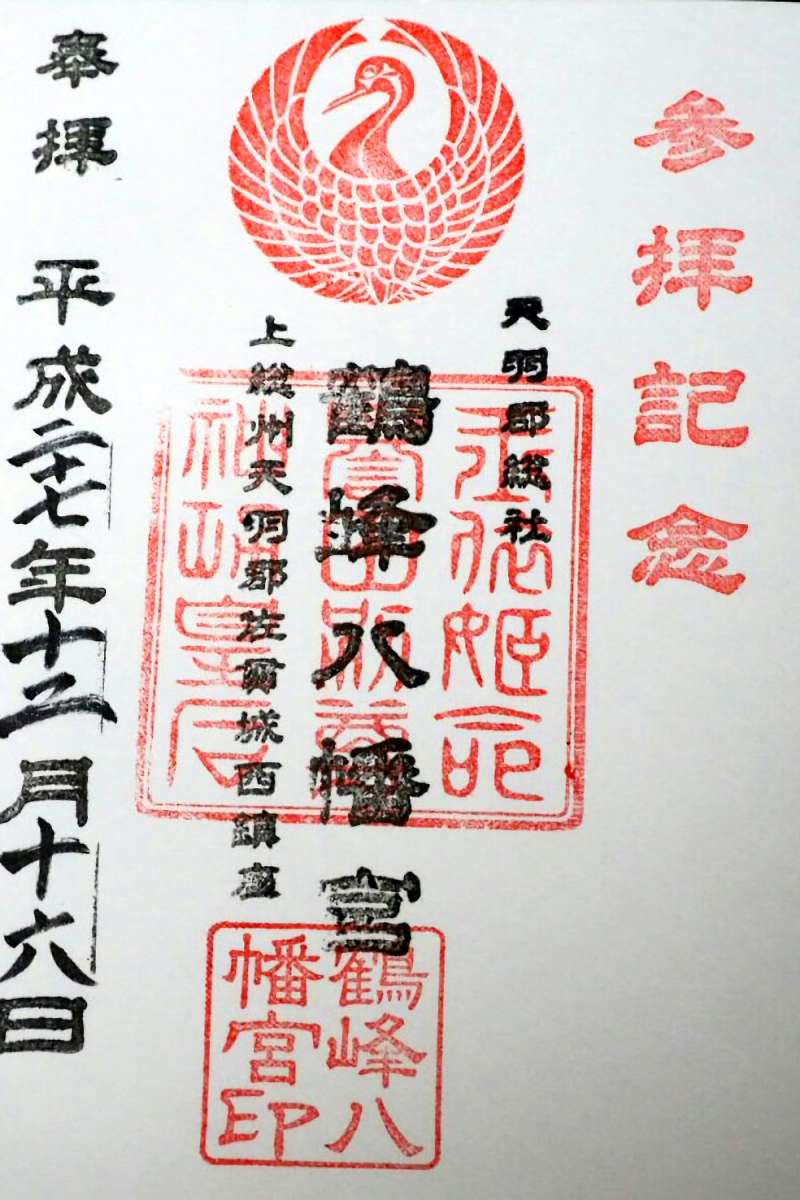 参拝記念
天羽郡総社
鶴峰八幡宮
上総州天羽郡佐貫城西鎮座
奉拝 平成二十七年十二月十六日
玉依姫命
神功皇后
鶴峰八
幡宮印